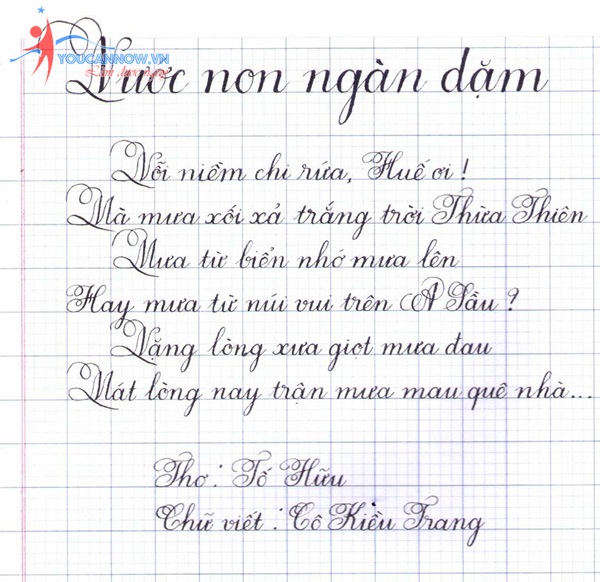 YOUCANNOW.VN
Nước non ngàn dặm
Nỗi niềm chi rứa, Huế ơi !
Mà mưa xối xả trắng trời Thừa Thiên
Mưa từ biển nhớ mưa lên
Hay mưa từ núi vui trên A Sầu ?
Nặng lòng xưa giọt mưa đau
Mát lòng nay trận mưa mau quê nhà...
Thơ : Tố Hữu
Chữ viết : Cô Kiều Trang